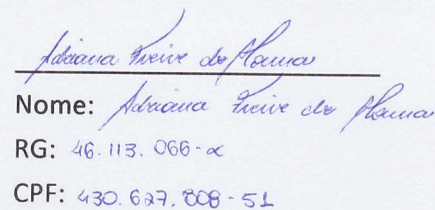 Adriana Freire de
Nome: Adriana Freire de
RG: 46.113.066-x
CPF: 430.627.808-51